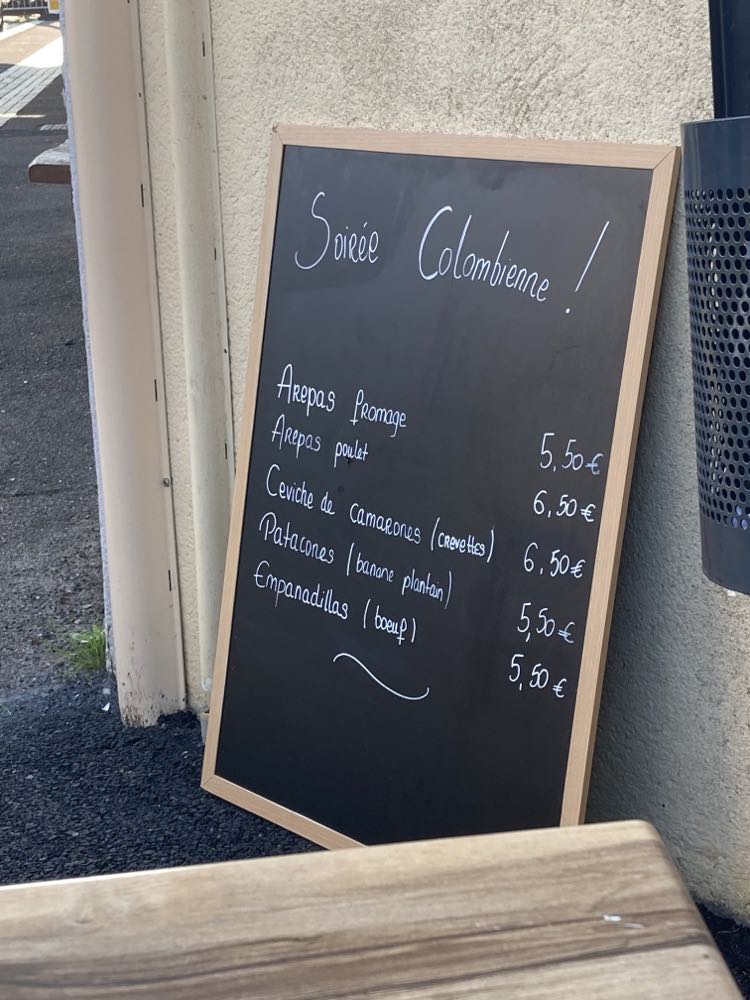 Soirée Colombienne !
Arepas fromage 5,50€
Arepas poulet 6,50€
Ceviche de camarones (crevettes) 6,50€
Patacones (banane plantain) 5,50€
Empanadillas (boeuf) 5,50€